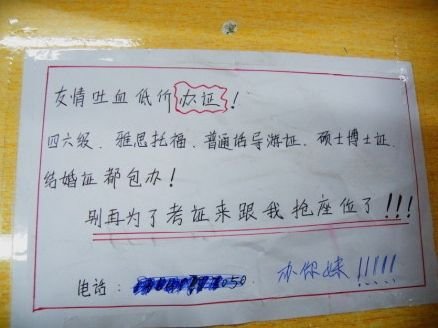 友情吐血低价办证！
四六级、雅思托福、普通话导游证、硕士博士证、
结婚证都包办！
别再为了考证来跟我抢座位了!!!
电话：050
办你妹!!!!!